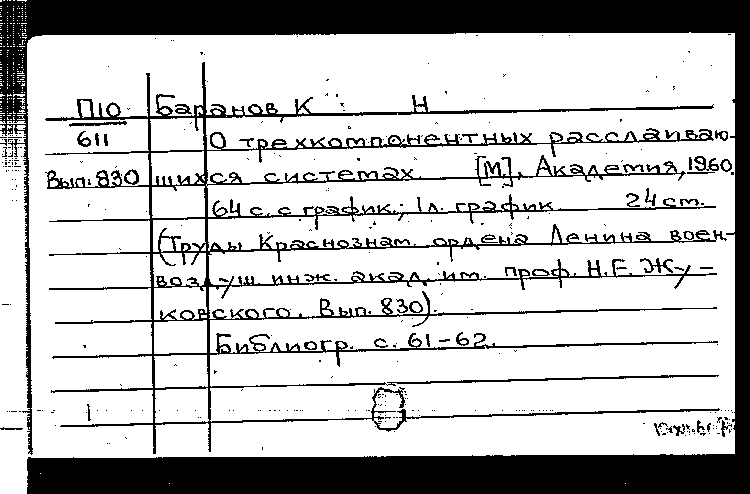 П10 Баранов, К Н
611 О трехкомпонентных расслаиваю-
Вып. 830 щихся системах. [М], Академия, 1960.
64 с. с график.; 1 л. график. 24 cm.
(Труды Краснознам. ордена Ленина воен.-
воздуш. инж. акад. им. проф. Н.Е. Жу-
ковского. Вып. 830).
Библиогр. с. 61-62.
1